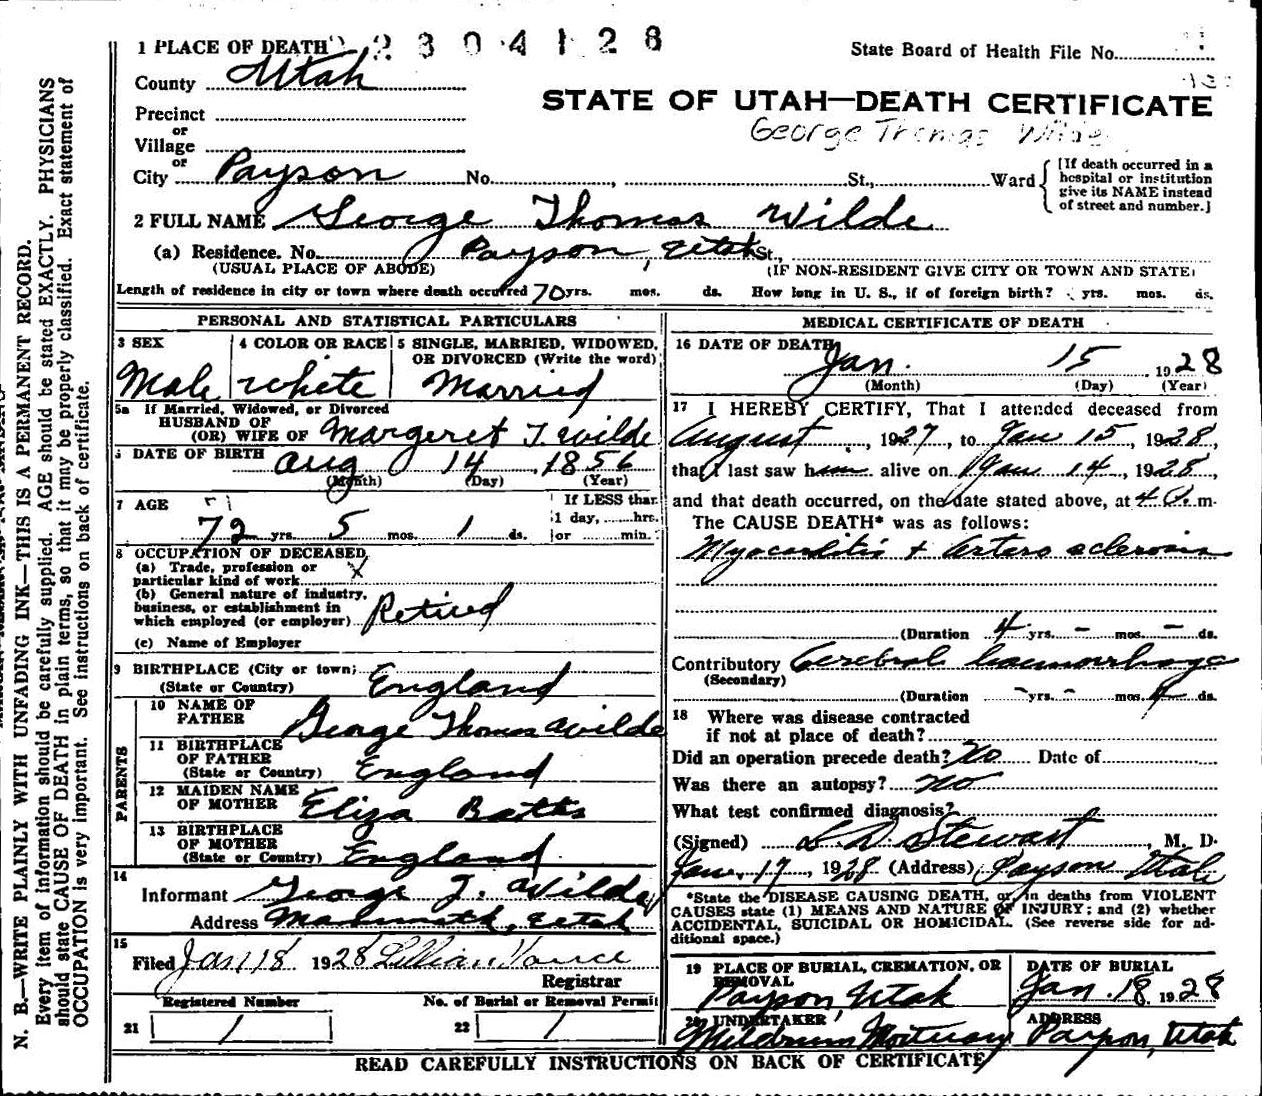 1 PLACE OF DEATH 2304128
State Board of Health File No.
County Utah
STATE OF UTAH—DEATH CERTIFICATE
Precinct
George Thomas Wilde
or
Village
or
City Payson No. , St., Ward
[If death occurred in a
hospital or institution
give its NAME instead
of street and number.]
2 FULL NAME George Thomas Wilde
(a) Residence. No. Payson, Utah St.,
(USUAL PLACE OF ABODE) (IF NON-RESIDENT GIVE CITY OR TOWN AND STATE)
Length of residence in city or town where death occurred 70 yrs. mos. ds. How long in U. S., if of foreign birth? yrs. mos. ds.
PERSONAL AND STATISTICAL PARTICULARS
3 SEX
Male
4 COLOR OR RACE
white
5 SINGLE, MARRIED, WIDOWED,
OR DIVORCED (Write the word)
Married
5a If Married, Widowed, or Divorced
HUSBAND OF
(OR) WIFE OF Margeret T. Wilde
6 DATE OF BIRTH Aug 14 1856
(Month) (Day) (Year)
7 AGE 71
72 yrs. 5 mos. 1 ds.
If LESS than
1 day, hrs.
or min.
8 OCCUPATION OF DECEASED
(a) Trade, profession or
particular kind of work X
(b) General nature of industry,
business, or establishment in
which employed (or employer) Retired
(c) Name of Employer
9 BIRTHPLACE (City or town)
(State or Country) England
PARENTS
10 NAME OF
FATHER George Thomas Wilde
11 BIRTHPLACE
OF FATHER
(State or Country) England
12 MAIDEN NAME
OF MOTHER Eliza Batts
13 BIRTHPLACE
OF MOTHER
(State or Country) England
14
Informant George T. Wilde
Address Mammoth, Utah
15
Filed Jan 18 1928 Lillian Vance
Registrar
Registered Number No. of Burial or Removal Permit
21 1 22 1
MEDICAL CERTIFICATE OF DEATH
16 DATE OF DEATH
Jan. 15 1928
(Month) (Day) (Year)
17 I HEREBY CERTIFY, That I attended deceased from
August, 1927, to Jan 15, 1928,
that I last saw him alive on Jan 14, 1928
and that death occurred, on the date stated above, at 4 m.
The CAUSE DEATH* was as follows:
Myocarditis + Artero sclerosis
(Duration 4 yrs. - mos. - ds.
Contributory Cerebral haemorrhage
(Secondary)
(Duration - yrs. - mos. 4 ds.
18 Where was disease contracted
if not at place of death?
Did an operation precede death? No Date of
Was there an autopsy? No
What test confirmed diagnosis?
(Signed) L. D. Stewart, M. D.
Jan. 17, 1928 (Address) Payson Utah
*State the DISEASE CAUSING DEATH, or, in deaths from VIOLENT
CAUSES state (1) MEANS AND NATURE OF INJURY; and (2) whether
ACCIDENTAL, SUICIDAL OR HOMICIDAL. (See reverse side for ad-
ditional space.)
19 PLACE OF BURIAL, CREMATION, OR
REMOVAL
Payson, Utah
DATE OF BURIAL
Jan. 18, 1928
20 UNDERTAKER
Mortuary
ADDRESS
Payson, Utah
READ CAREFULLY INSTRUCTIONS ON BACK OF CERTIFICATE
N. B.—WRITE PLAINLY WITH UNFADING INK—THIS IS A PERMANENT RECORD.
Every item of information should be carefully supplied. AGE should be stated EXACTLY. PHYSICIANS
should state CAUSE OF DEATH in plain terms, so that it may be properly classified. Exact statement of
OCCUPATION is very important. See instructions on back of certificate.